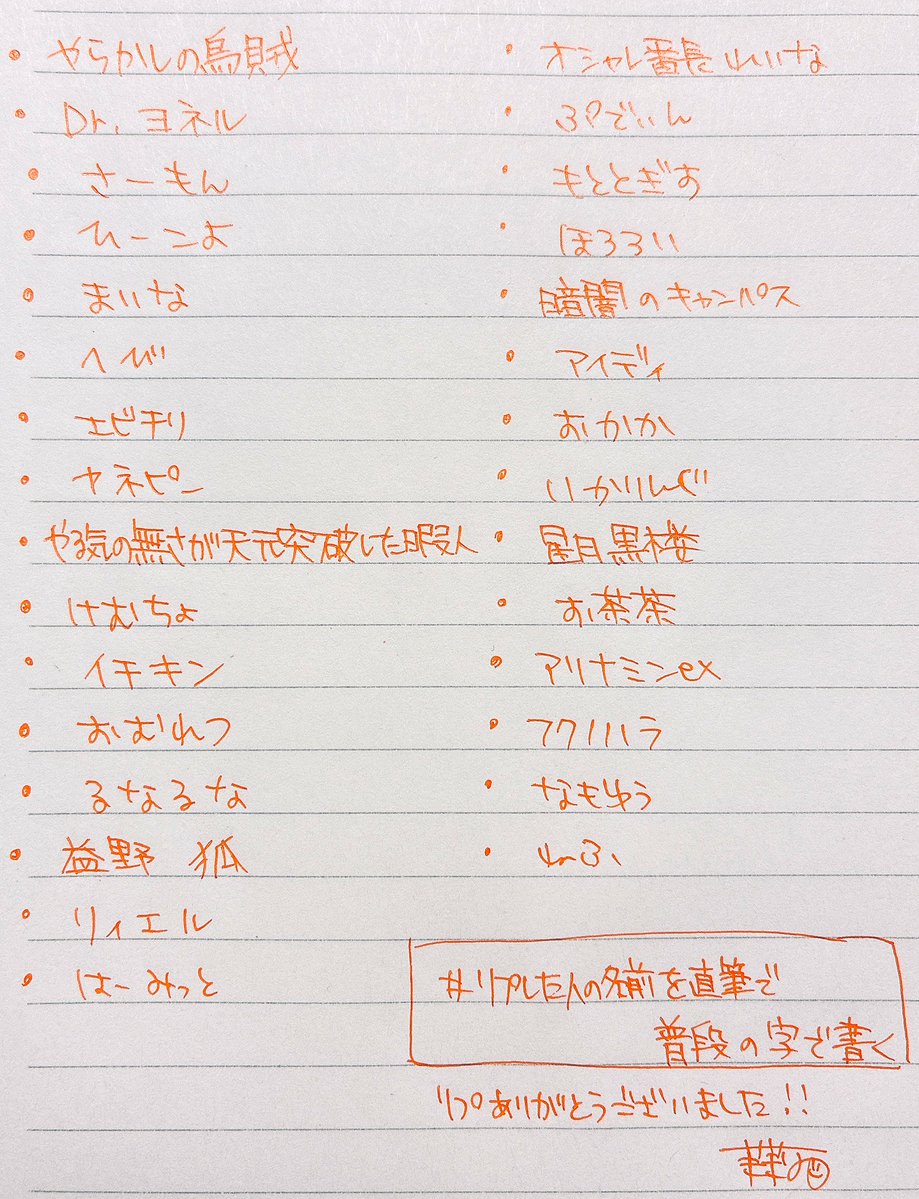 ・やらかしの烏賊
・Dr.ヨネル
・さーもん
・ひーこよ
・まいな
・へび
・エビチリ
・ヤネピン
・やる気の無さが天元突破した暇人
・けむちょ
・イチキン
・おむれつ
・るなるな
・益野 狐
・リィエル
・はーみっと
・オシャレ番長 れいな
・ぷでぃん
・もととぎす
・ほろろい
・暗闇のキャンパス
・アイディ
・おかか
・いかりんぐ
・黒楼
・お茶茶
・アリナミンex
・フクノハラ
・なもゆう
・ゆふ
#リプした人の名前を直筆で
普段の字で書く
リプありがとうございました!!